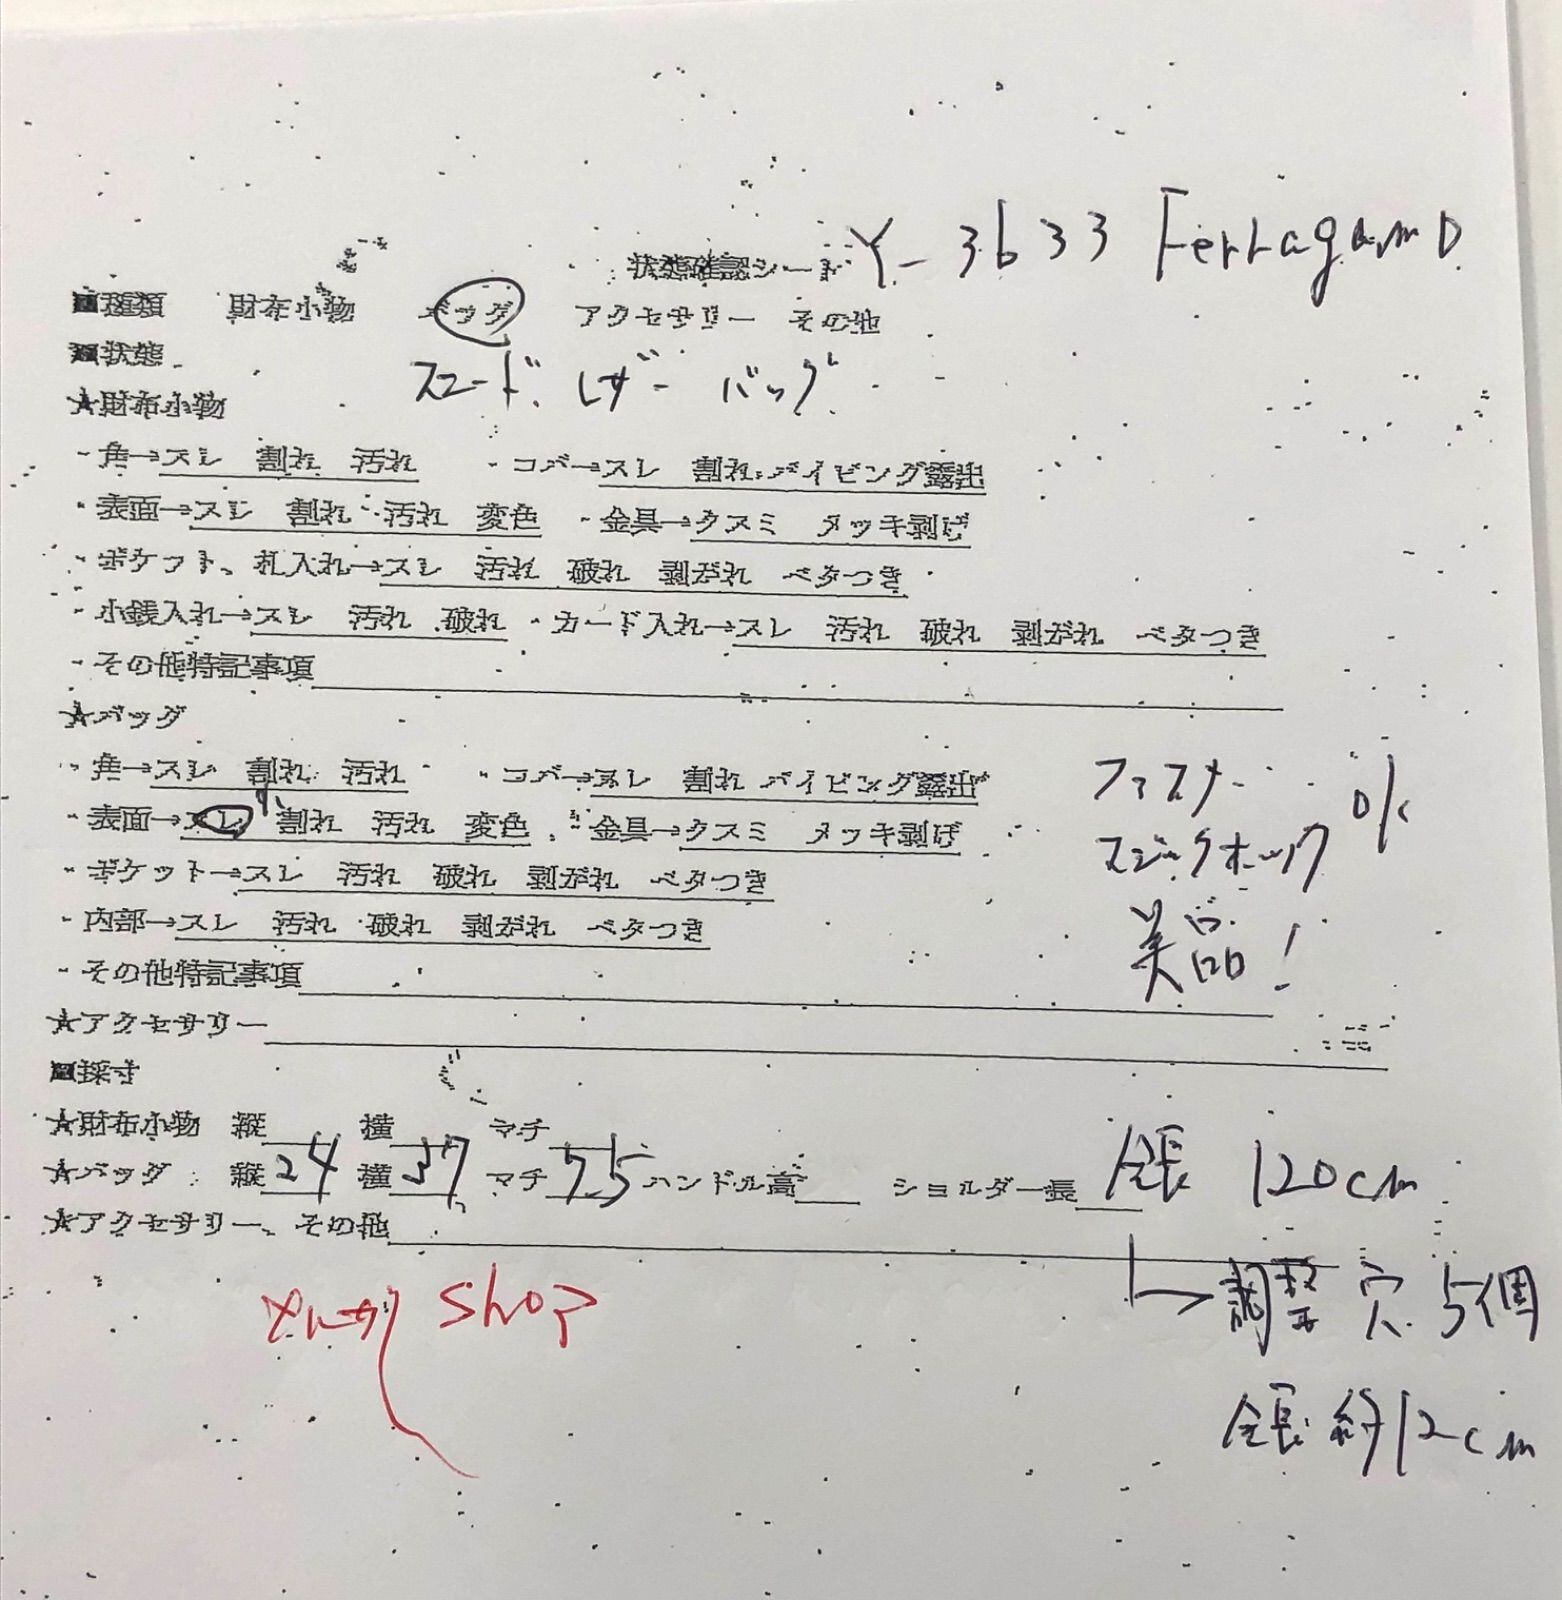 状態確認シート Y-3633 Ferragamo
■種類 財布小物 バッグ アクセサリー その他
■状態 スエード レザー バッグ
★財布小物
・角→スレ 割れ 汚れ ・コバ→スレ 割れ パイピング露出
・表面→スレ 割れ 汚れ 変色 ・金具→クスミ メッキ剥げ
・ポケット、札入れ→スレ 汚れ 破れ 剥がれ ベタつき
・小銭入れ→スレ 汚れ 破れ ・カード入れ→スレ 汚れ 破れ 剥がれ ベタつき
・その他特記事項
★バッグ
・角→スレ 割れ 汚れ ・コバ→スレ 割れ パイピング露出
ファスナー
・表面→スレ 割れ 汚れ 変色 ・金具→クスミ メッキ剥げ
マジックホック OK
・ポケット→スレ 汚れ 破れ 剥がれ ベタつき
・内部→スレ 汚れ 破れ 剥がれ ベタつき
美品!
・その他特記事項
★アクセサリー
■採寸
★財布小物 縦 横 マチ
★バッグ 縦24 横37 マチ7.5 ハンドル高 ショルダー長 全長 120cm
★アクセサリー、その他
→調整穴 5個
shop
全長 約12cm